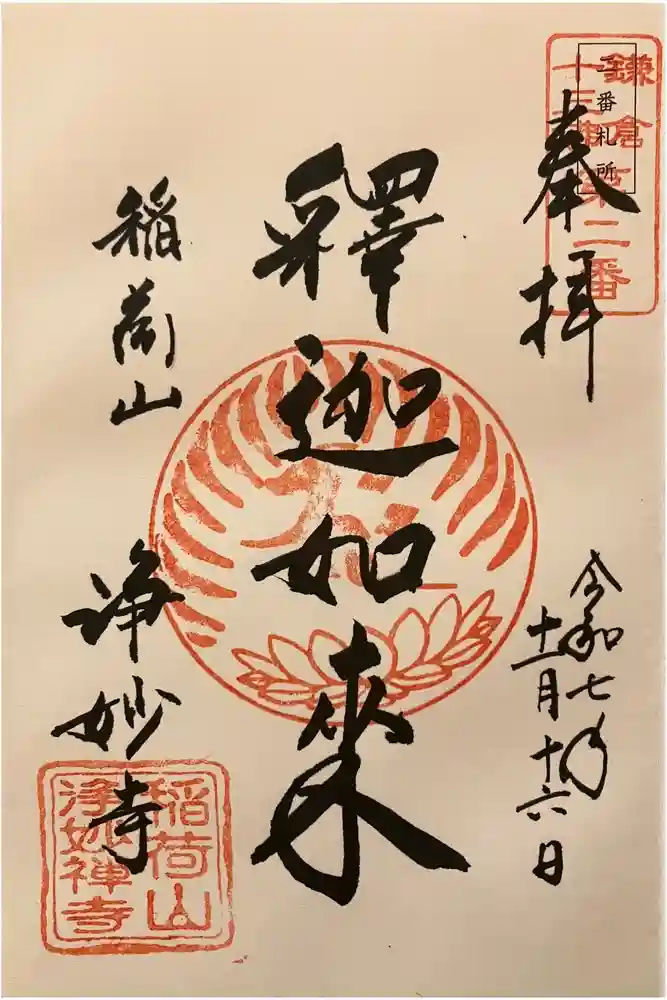 奉拝
二番札所
鎌倉
十三佛第二番
令和七年
十一月十六日
釋迦如来
稲荷山
浄妙寺
稲荷山
浄妙禅寺